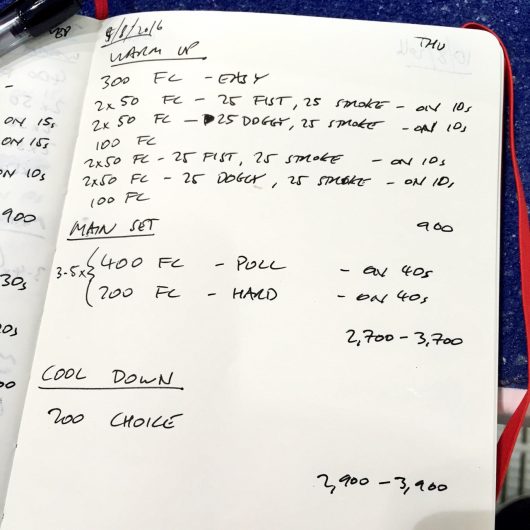 9/8/2016
THU
WARM UP
300 FC - EASY
2x50 FC - 25 FIST, 25 STROKE - ON 10s
2x50 FC - 25 DOGGY, 25 STROKE - ON 10s
100 FC
2x50 FC - 25 FIST, 25 STROKE - ON 10s
2x50 FC - 25 DOGGY, 25 STROKE - ON 10s
100 FC
900
MAIN SET
3-5x
400 FC - PULL - ON 40s
200 FC - HARD - ON 40s
2,700 - 3,700
COOL DOWN
200 CHOICE
2,900 - 3,900
ON 15s
ON 15s
ON 10s
900
30s